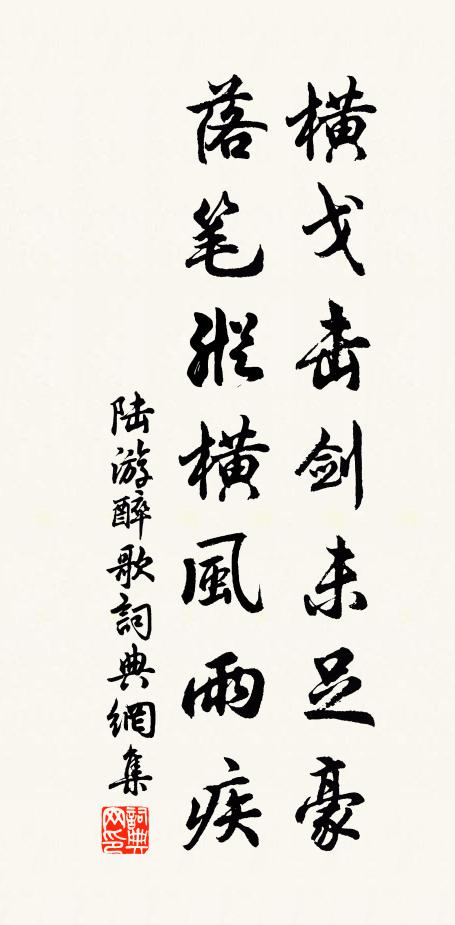 橫戈击剑未足豪
落笔縱橫風雨疾
陆游醉歌詞典網集
詞典网印